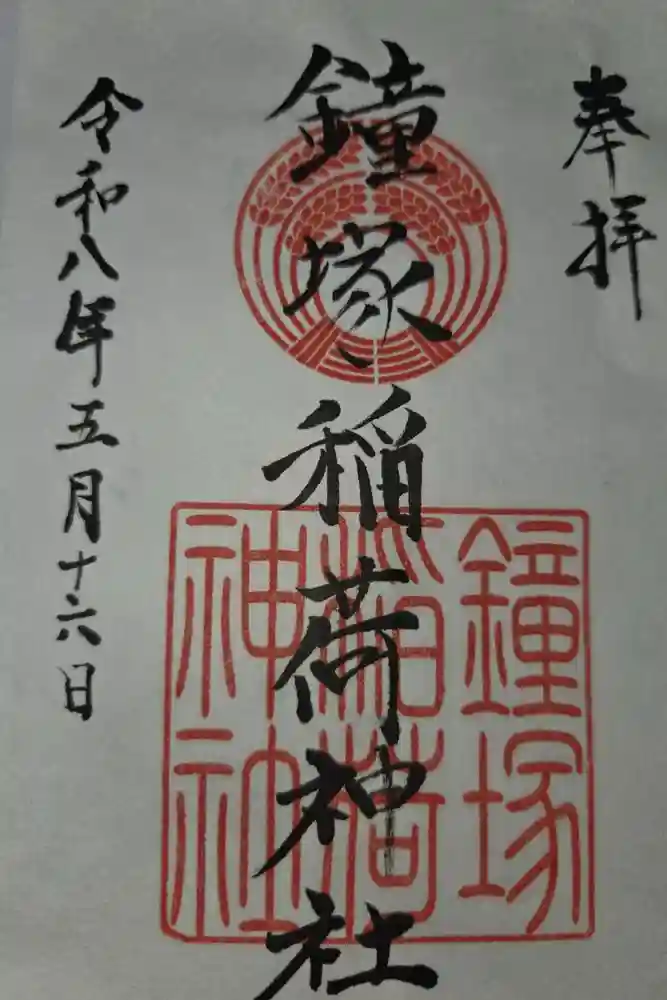 奉拝
鐘塚稲荷神社
鐘塚
稲荷
神社
令和八年五月十六日